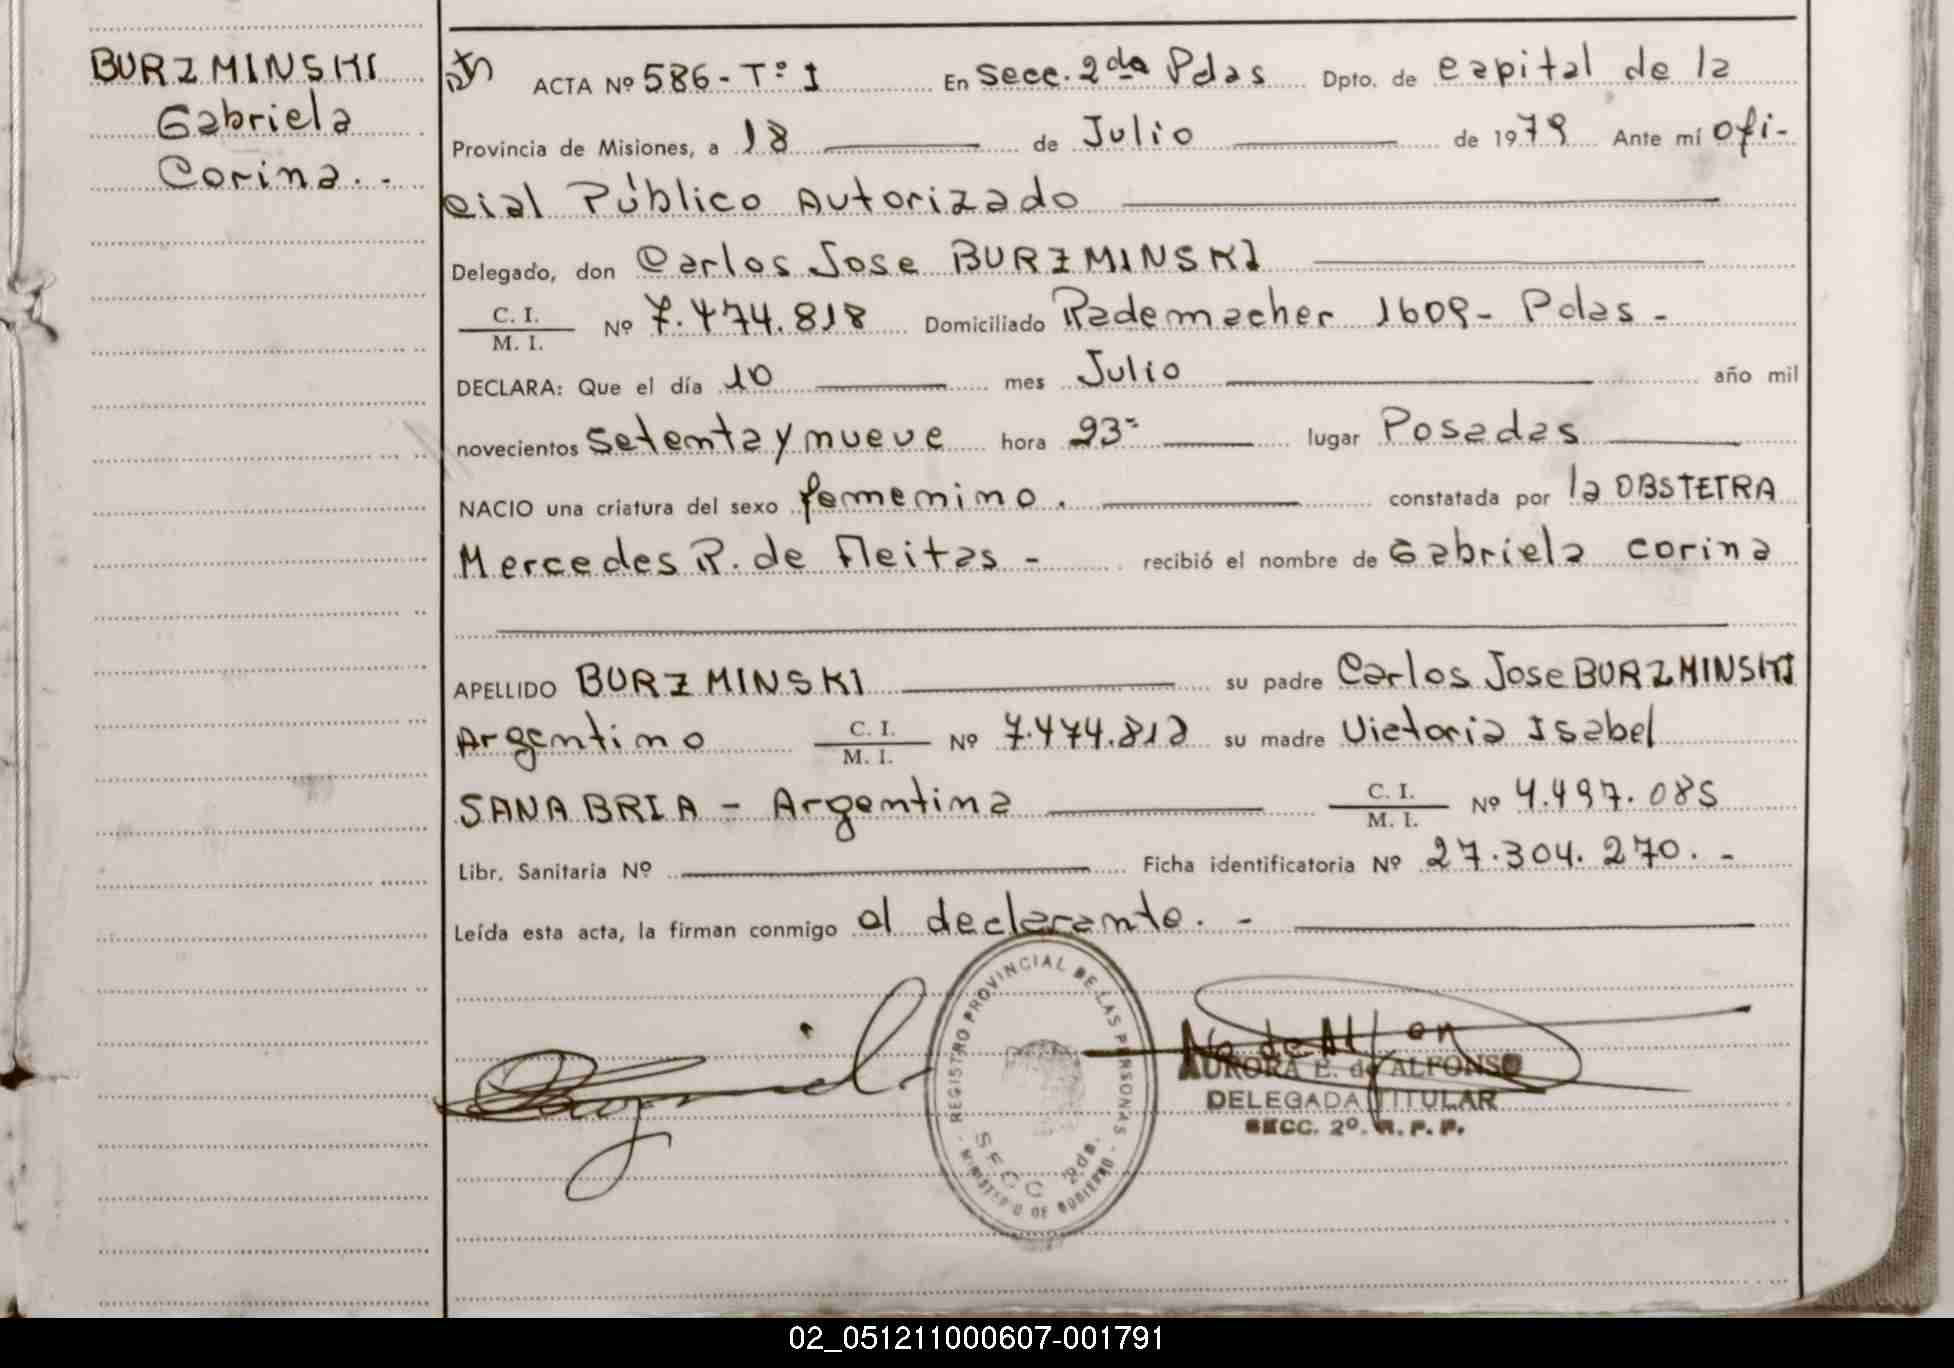 BURZMINSKI
Gabriela
Corina. -
ACTA Nº 586 - Tº I En Secc. 2da Pdas Dpto. de capital de la
Provincia de Misiones, a 18 de Julio de 1979 Ante mí ofi-
cial Público Autorizado
Delegado, don Carlos Jose BURZMINSKI
C. I.
M. I. Nº 7.474.818 Domiciliado Rademacher 1609 - Pdas -
DECLARA: Que el día 10 mes Julio año mil
novecientos Setenta y nueve hora 23= lugar Posadas
NACIO una criatura del sexo femenino. constatada por la OBSTETRA
Mercedes R. de Fleitas - recibió el nombre de Gabriela corina
APELLIDO BURZMINSKI su padre Carlos Jose BURZMINSKI
Argentino C. I.
M. I. Nº 7.474.818 su madre Victoria Isabel
SANABRIA - Argentina C. I.
M. I. Nº 4.497.085
Libr. Sanitaria Nº Ficha identificatoria Nº 27.304.270. -
Leída esta acta, la firman conmigo el declarante. -
REGISTRO PROVINCIAL DE LAS PERSONAS
SECC 2da.
- MINISTERIO DE GOBIERNO -
AURORA E. de ALFONSO
DELEGADA TITULAR
SECC. 2º. R. P. P.
02_051211000607-001791